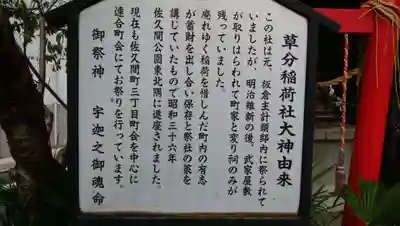 草分稲荷社大神由来
この社は元、板倉主計頭邸内に祭られて
いましたが、明治維新の後、武家屋敷
が取りはらわれて町家と変り祠のみが
残っていました。
廃れゆく稲荷を惜しんだ町内の有志
が蓄財を出し合い保存と祭祀の策を
講じていたもので昭和三十六年
佐久間公園東北隅に遷座されました。
現在も佐久間町三丁目町会を中心に
連合町会にてお祭りを行っています。
御祭神 宇迦之御魂命